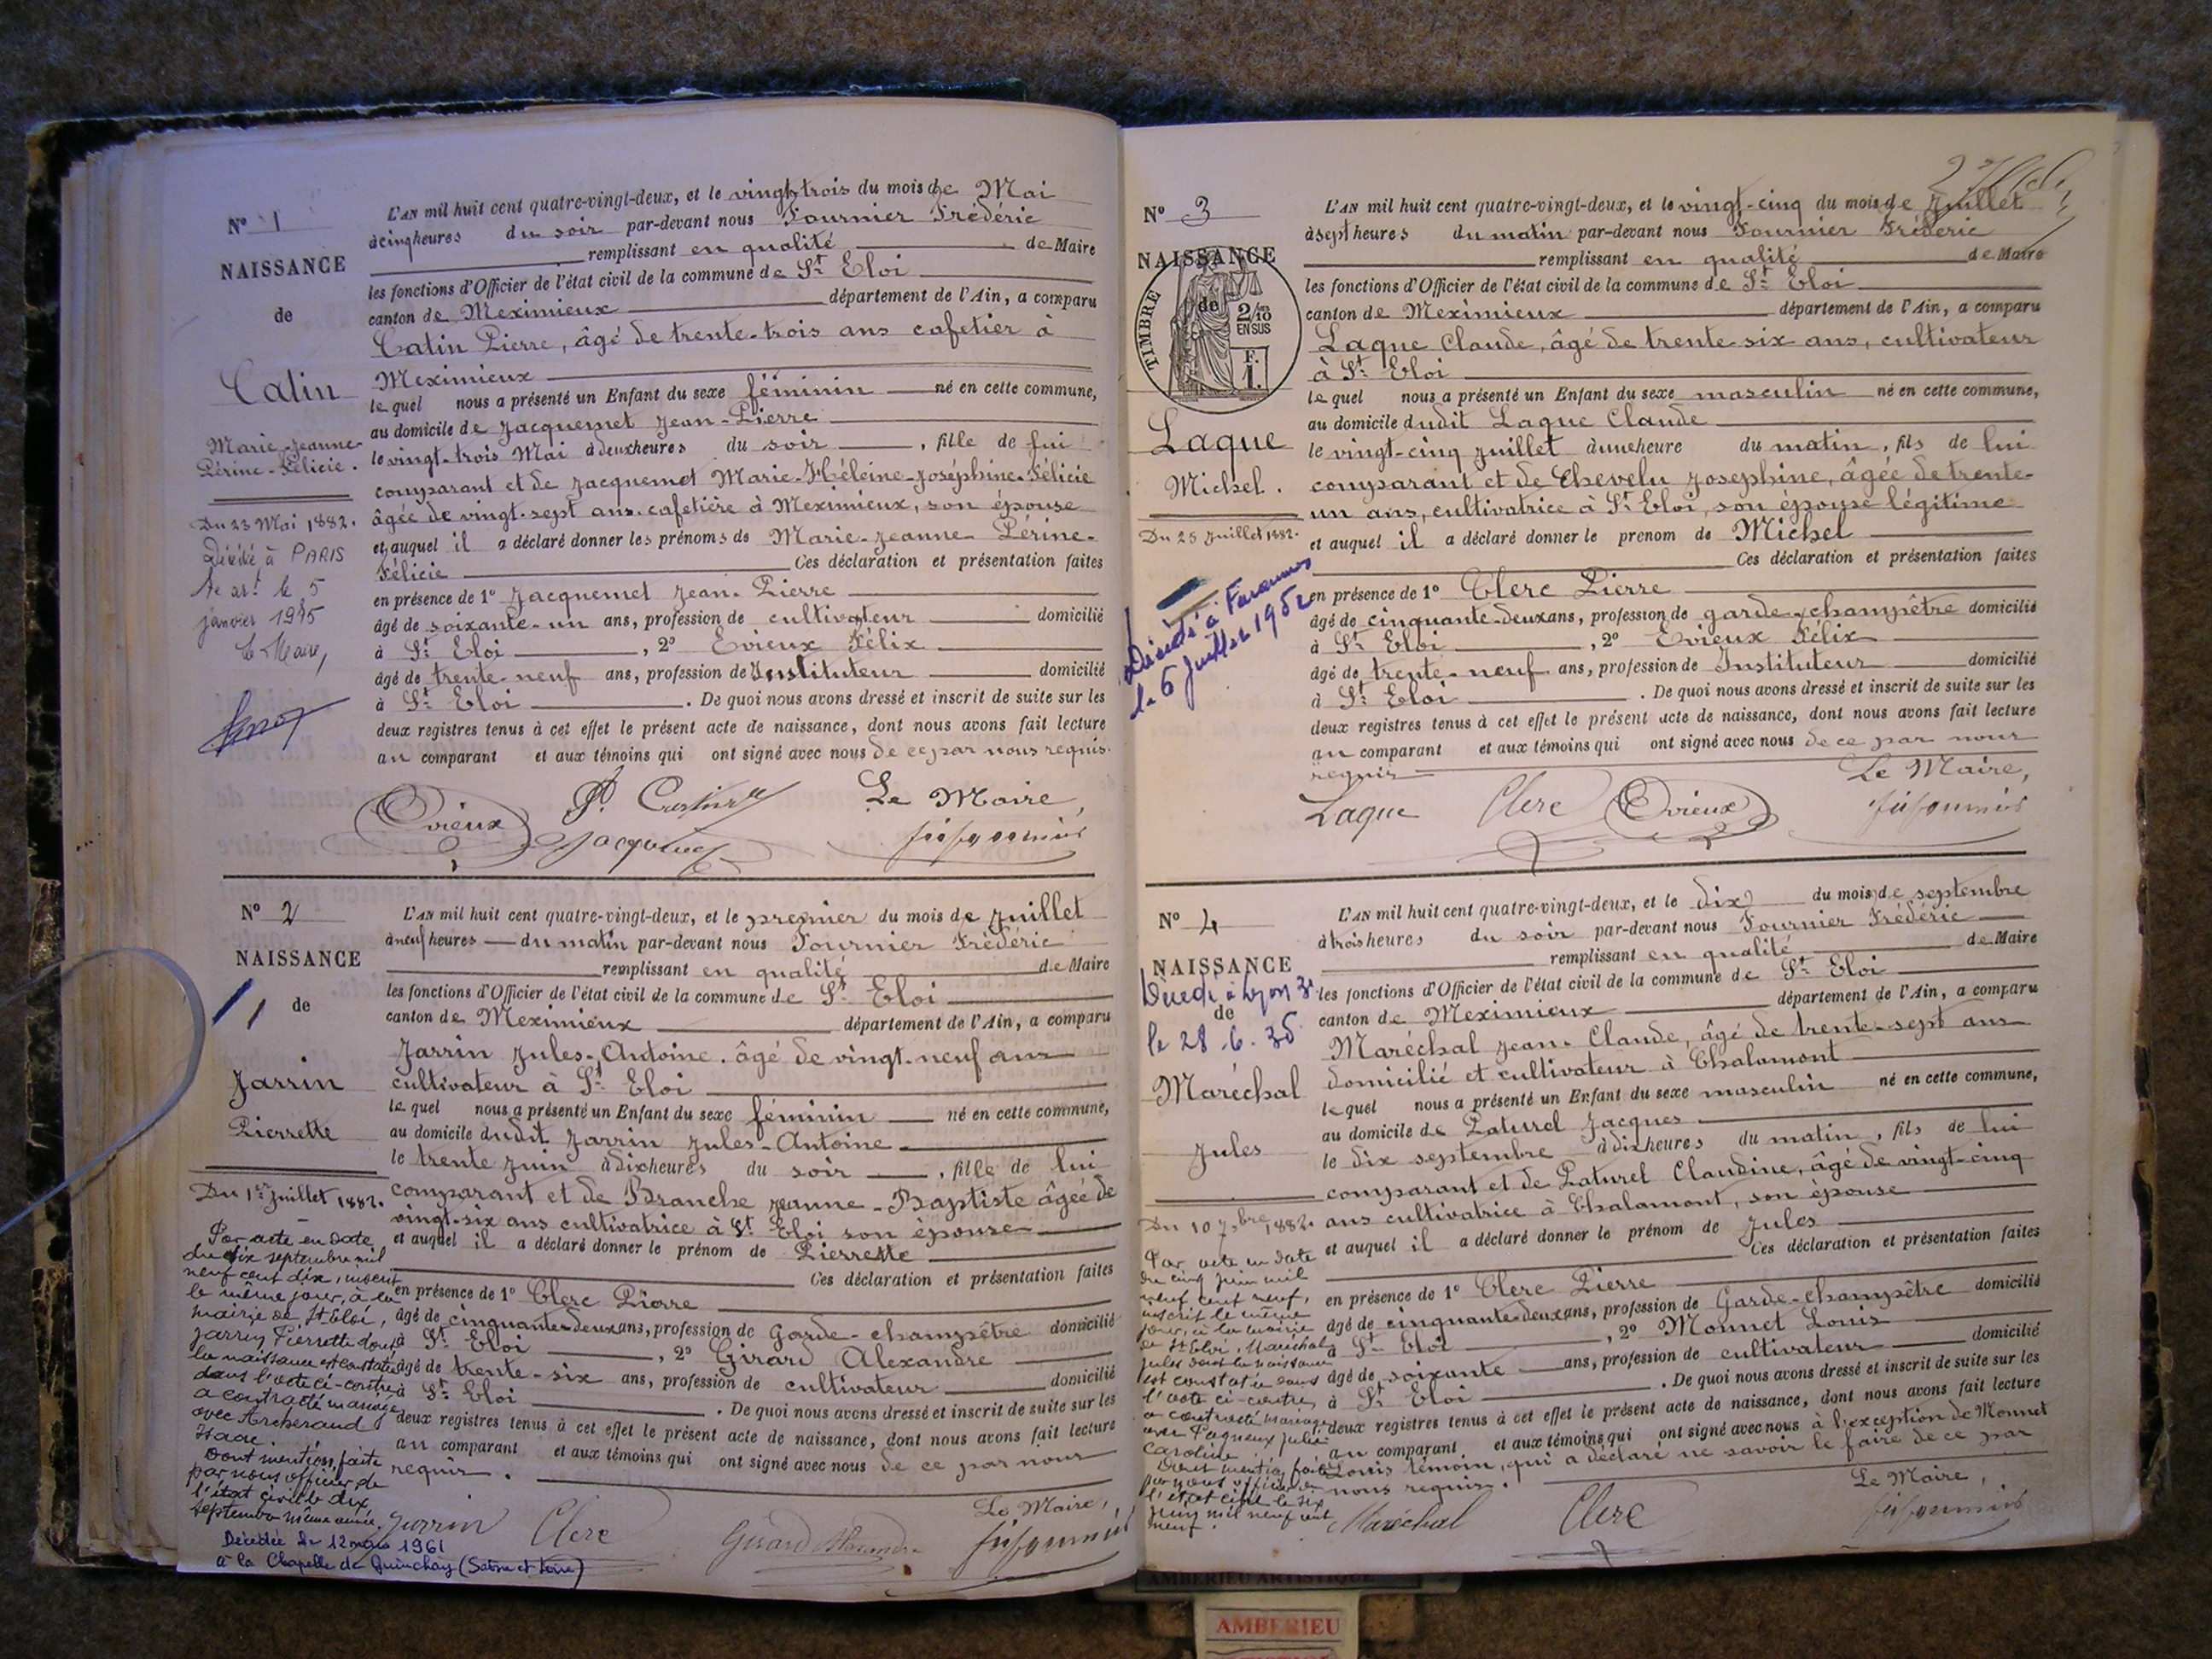 N° 1
NAISSANCE
de
Catin
Marie-Jeanne-
Périne-Félicie.
Du 23 Mai 1882.
Décédé à PARIS
le 5
janvier 1945
Le Maire,
L'AN mil huit cent quatre-vingt-deux, et le vingt-trois du mois de Mai
à cinq heures du soir par-devant nous Fournier Frédéric
remplissant en qualité de Maire
les fonctions d'Officier de l'état civil de la commune de St Eloi
canton de Meximieux département de l'Ain, a comparu
Catin Pierre, âgé de trente-trois ans cafetier à
Meximieux
lequel nous a présenté un Enfant du sexe féminin né en cette commune,
au domicile de Jacquemet Jean-Pierre
le vingt-trois Mai à deux heures du soir, fille de lui
comparant et de Jacquemet Marie-Hélène-Joséphine-Félicie
âgée de vingt-sept ans. cafetière à Meximieux, son épouse
et auquel il a déclaré donner les prénoms de Marie-Jeanne Périne-
Félicie Ces déclaration et présentation faites
en présence de 1° Jacquemet Jean-Pierre
âgé de soixante-un ans, profession de cultivateur domicilié
à St Eloi, 2° Evieux Félix
âgé de trente-neuf ans, profession de Instituteur domicilié
à St Eloi. De quoi nous avons dressé et inscrit de suite sur les
deux registres tenus à cet effet le présent acte de naissance, dont nous avons fait lecture
au comparant et aux témoins qui ont signé avec nous de ce par nous requis.
Le Maire,
Evieux
N° 2
NAISSANCE
de
Jarrin
Pierrette
Du 1er Juillet 1882.
Par acte en date
du dix septembre mil
neuf cent dix, inscrit
le même jour, à la
mairie de St Eloi,
Jarrin Pierrette dont
la naissance est constatée
dans l'acte ci-contre
a contracté mariage
avec Archeraud
Isaac.
Dont mention faite
par nous officier de
l'état civil le dix
septembre même année.
Décédée le 12 mars 1961
à la Chapelle de Guinchay (Saône et Loire)
L'AN mil huit cent quatre-vingt-deux, et le premier du mois de Juillet
à neuf heures du matin par-devant nous Fournier Frédéric
remplissant en qualité de Maire
les fonctions d'Officier de l'état civil de la commune de St Eloi
canton de Meximieux département de l'Ain, a comparu
Jarrin Jules-Antoine. âgé de vingt-neuf ans
cultivateur à St Eloi
lequel nous a présenté un Enfant du sexe féminin né en cette commune,
au domicile dudit Jarrin Jules-Antoine
le trente Juin à dix heures du soir, fille de lui
comparant et de Branche Jeanne-Baptiste âgée de
vingt-six ans cultivatrice à St Eloi son épouse
et auquel il a déclaré donner le prénom de Pierrette
Ces déclaration et présentation faites
en présence de 1° Clerc Pierre
âgé de cinquante-deux ans, profession de Garde-champêtre domicilié
à St Eloi, 2° Girard Alexandre
âgé de trente-six ans, profession de cultivateur domicilié
à St Eloi. De quoi nous avons dressé et inscrit de suite sur les
deux registres tenus à cet effet le présent acte de naissance, dont nous avons fait lecture
au comparant et aux témoins qui ont signé avec nous de ce par nous
requis.
Le Maire,
Jarrin Clerc Girard Alexandre
N° 3
NAISSANCE
de
TIMBRE
2/10
EN SUS
F.
1.
Laque
Michel.
Du 25 Juillet 1882.
Décédé à Faramans
le 6 Juillet 1952
L'AN mil huit cent quatre-vingt-deux, et le vingt-cinq du mois de Juillet
à sept heures du matin par-devant nous Fournier Frédéric
remplissant en qualité de Maire
les fonctions d'Officier de l'état civil de la commune de St Eloi
canton de Meximieux département de l'Ain, a comparu
Laque Claude, âgé de trente-six ans, cultivateur
à St Eloi
lequel nous a présenté un Enfant du sexe masculin né en cette commune,
au domicile dudit Laque Claude
le vingt-cinq Juillet à une heure du matin, fils de lui
comparant et de Chevelu Josephine, âgée de trente-
un ans, cultivatrice à St Eloi, son épouse légitime
et auquel il a déclaré donner le prenom de Michel
Ces déclaration et présentation faites
en présence de 1° Clerc Pierre
âgé de cinquante-deux ans, profession de garde-champêtre domicilié
à St Eloi, 2° Evieux Félix
âgé de trente-neuf ans, profession de Instituteur domicilié
à St Eloi. De quoi nous avons dressé et inscrit de suite sur les
deux registres tenus à cet effet le présent acte de naissance, dont nous avons fait lecture
au comparant et aux témoins qui ont signé avec nous de ce par nous
requis
Le Maire,
Laque Clerc Evieux
N° 4
NAISSANCE
de
Décédé à Lyon 3e
le 28.6.35
Maréchal
Jules
Du 10 7bre 1882.
Par acte en date
du cinq juin mil
neuf cent neuf,
inscrit le même
jour, à la mairie
de St Eloi, Maréchal
Jules dont la naissance
est constatée dans
l'acte ci-contre,
a contracté mariage
avec Pagneux Julie
Caroline
Dont mention faite
par nous officier de
l'état civil le six
juin mil neuf cent
neuf.
L'AN mil huit cent quatre-vingt-deux, et le dix du mois de septembre
à trois heures du soir par-devant nous Fournier Frédéric
remplissant en qualité de Maire
les fonctions d'Officier de l'état civil de la commune de St Eloi
canton de Meximieux département de l'Ain, a comparu
Maréchal Jean-Claude, âgé de trente-sept ans
domicilié et cultivateur à Chalamont
lequel nous a présenté un Enfant du sexe masculin né en cette commune,
au domicile de Paturel Jacques
le dix septembre à dix heures du matin, fils de lui
comparant et de Paturel Claudine, âgé de vingt-cinq
ans cultivatrice à Chalamont, son épouse
et auquel il a déclaré donner le prénom de Jules
Ces déclaration et présentation faites
en présence de 1° Clerc Pierre
âgé de cinquante-deux ans, profession de Garde-champêtre domicilié
à St Eloi, 2° Monnet Louis
âgé de soixante ans, profession de cultivateur domicilié
à St Eloi. De quoi nous avons dressé et inscrit de suite sur les
deux registres tenus à cet effet le présent acte de naissance, dont nous avons fait lecture
au comparant et aux témoins qui ont signé avec nous à l'exception de Monnet
Louis témoin, qui a déclaré ne savoir le faire de ce par
nous requis.
Le Maire,
Maréchal Clerc
AMBERIEU ARTISTIQUE
AMBERIEU